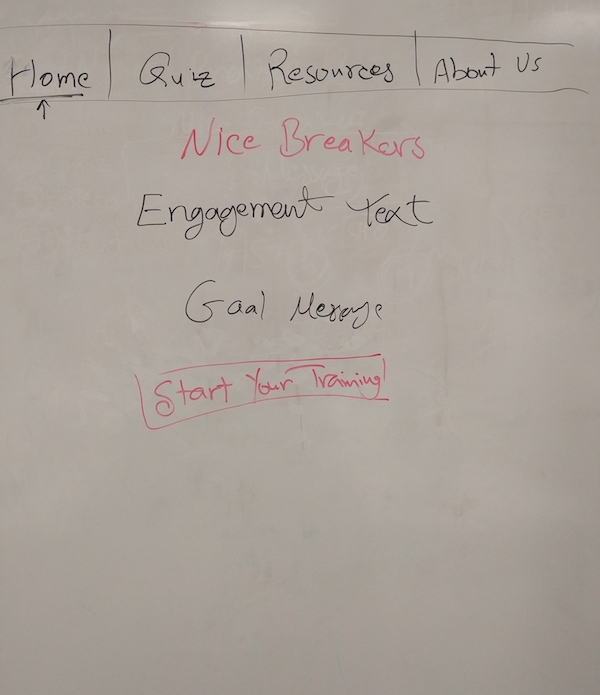 Home | Quiz | Resources | About Us
Nice Breakers
Engagement Text
Goal Message
Start Your Training